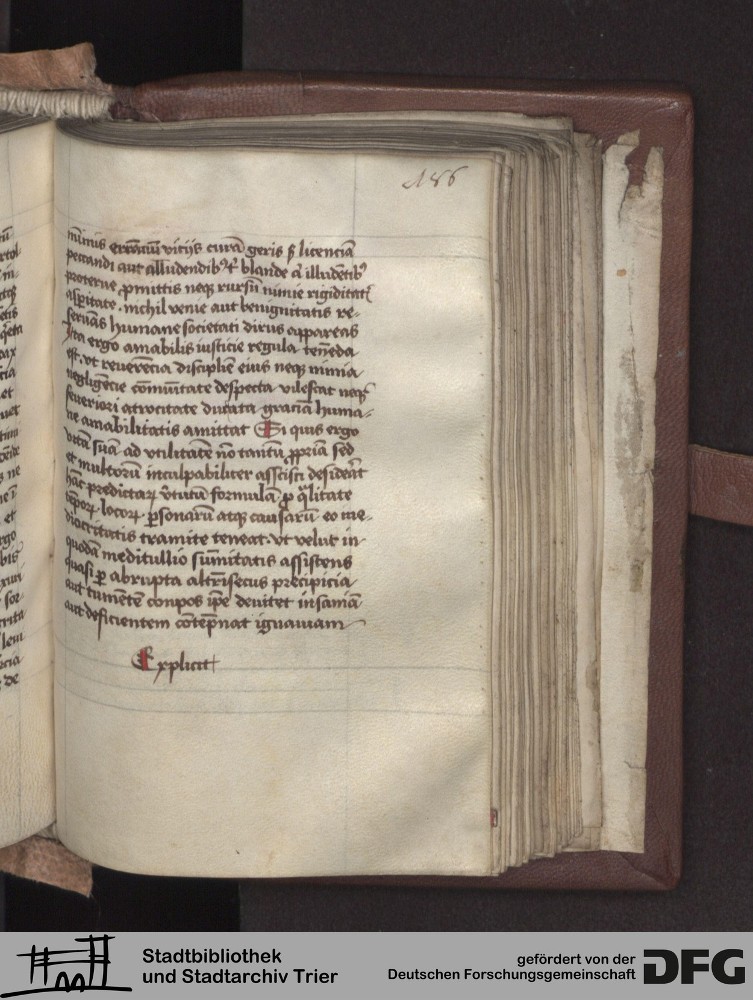 186
minus errantiū vicijs curā geris s̄ licenciā
peccandi aut alludendibꝰ blande aut illudētibꝰ
proterue ꝓmittis neqꝫ rursū nimie rigiditatis
asꝑitate nichil venie aut benignitatis re-
seruās humane societati dirus appareas
Ita ergo amabilis iusticie regula tenēda
est vt reuerēcia discipline eius neqꝫ nimia
negligēcie cōmunitate despecta vilescat neqꝫ
seueriori atrocitate durata graciā huma-
ne amabilitatis amittat Si quis ergo
vitā suā ad vtilitatē nō tantū ꝓpriā sed
et multorū inculpabiliter asscisci desiderat
hāc predictarꝫ v̓tutū formulā ꝓ q̄litate
tēporꝫ locorꝫ ꝑsonarū atqꝫ causarū eo me-
diocritatis tramite teneat vt velut in
quodā meditullio sūmitatis assistens
quasi ꝑ abrupta altrīsecus precipicia
aut tumētem conpos ip̄e deuitet insaniā
aut deficientem cōtēpnat ignauiam
Explicit
Stadtbibliothek
und Stadtarchiv Trier
gefördert von der
Deutschen Forschungsgemeinschaft
DFG